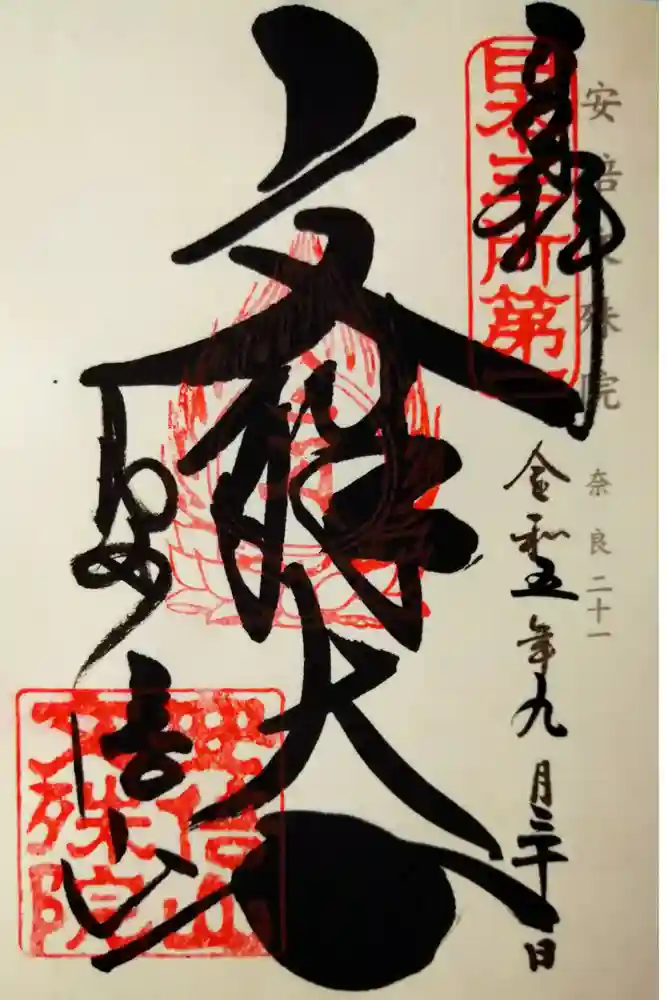 安倍文殊院
奈良二十一
奉拝
日本三所第一
令和五年九月三十日
文殊大
安倍山
安倍山
文殊院